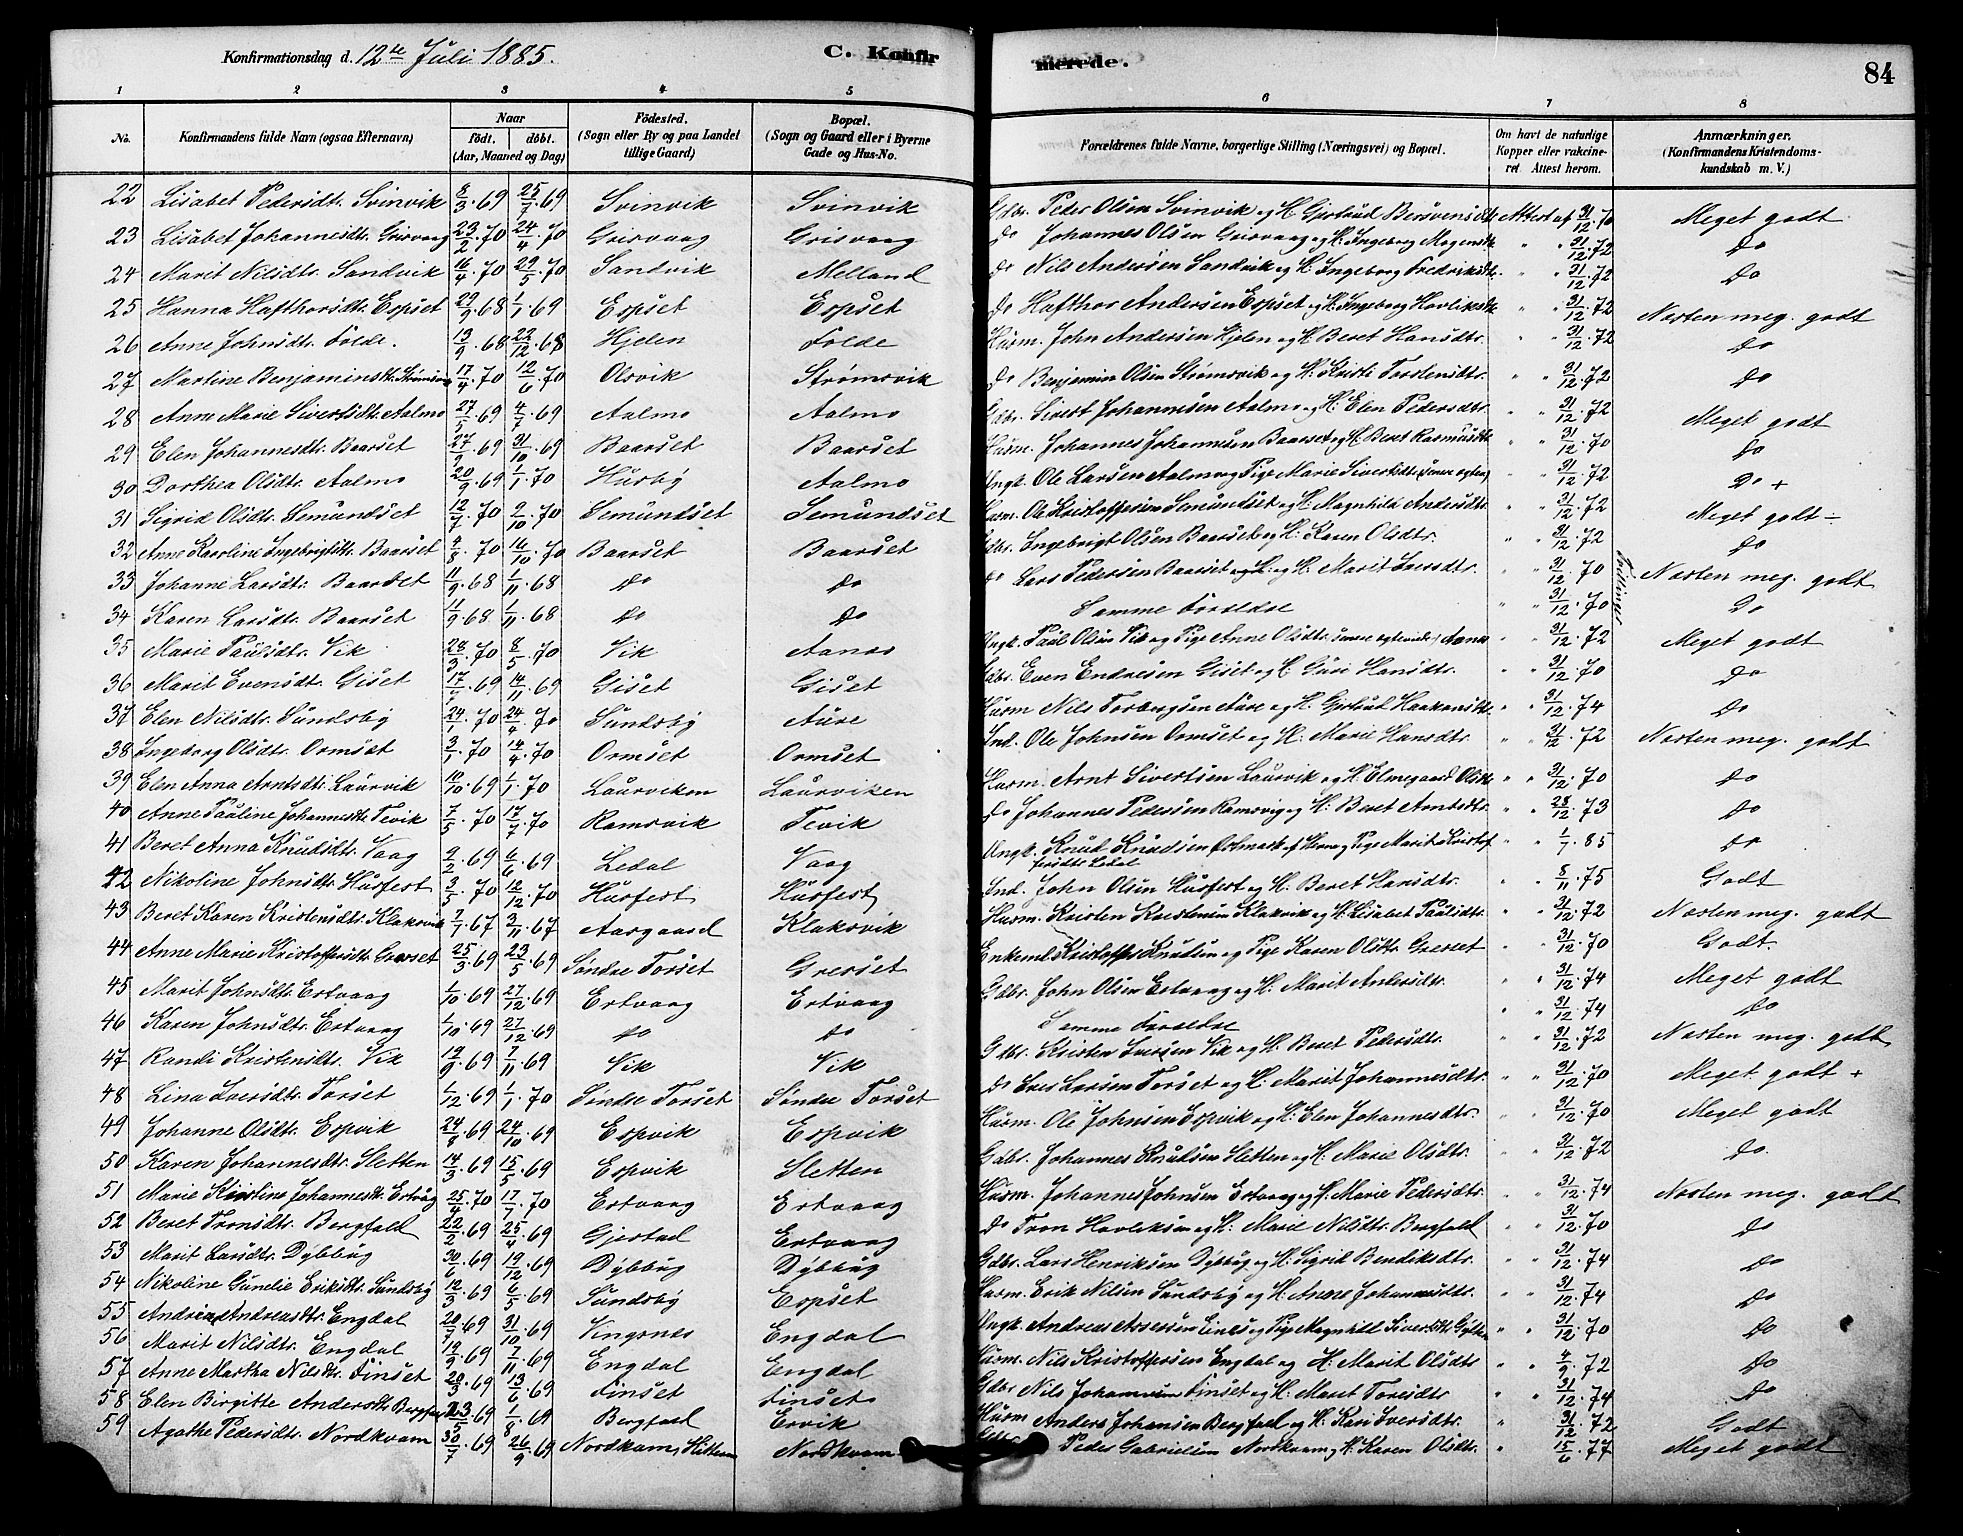 Konfirmationsdag d. 12te Juli 1885. C. Konfirmerede. 84
1 2 3 4 5 6 7 8
No. Konfirmandens fulde Navn (ogsaa Efternavn) Naar födt. döbt. (Aar, Maaned og Dag) Födested. (Sogn eller By og paa Landet tillige Gaard) Bopæl. (Sogn og Gaard eller i Byerne Gade og Hus-No. Forældrenes fulde Navne, borgerlige Stilling (Næringsvei) og Bopæl. Om havt de naturlige Kopper eller vakcineret Attest herom. Anmærkninger. (Konfirmandens Kristendomskundskab m. V.)
22 Lisabet Pedersdtr. Svinvik 8/3.69 25/7.69 Svinvik Svinvik Gdbr. Peder Olsen Svinvik og H. Gjertrud Bersvensdtr Attest af 31/12.70 Meget godt
23 Lisabet Johannesdtr. Grisvaag 23/2.70 24/4.70 Grisvaag Grisvaag do Johannes Olsen Grisvaag og H. Ingeborg Mogensdtr " " 31/12.72 do
24 Marit Nilsdtr. Sandvik 16/4.70 29/5.70 Sandvik Melland do Nils Andersen Sandvik og H. Ingeborg Fredriksdtr. " " 31/12.72 do
25 Hanna Hafthorsdtr. Espset 29/9.68 1/1.69 Espset Espset do Hafthor Andersen Espset og H. Ingeborg Havliksdtr " " 31/12.72 Næsten meg. godt
26 Anne Johnsdtr. Folde. 13/9.68 22/12.68 Hjelen Folde Husm. John Andersen Hjelen og H. Beret Hansdtr. " " 31/12.72 do
27 Martine Benjaminsdtr. Strømsvik 17/4.70 12/6.70 Olsvik Strømsvik do Benjamin Olsen Strømsvik og H. Kristi Torstensdtr. " " 31/12.72 do
28 Anne Marie Sivertsdtr. Aalmo 27/5.69 4/7.69 Aalmo Aalmo Gdbr. Sivert Johannesen Aalmo og H. Elen Pedersdtr. " " 31/12.72 Meget godt
29 Elen Johannesdtr. Baarset 27/9.69 31/10.69 Baarset Baarset Husm. Johannes Johannesen Baarset og H. Beret Rasmusdtr " " 31/12.70 do
30 Dorthea Olsdtr. Aalmo 20/9.69 1/1.70 Husby Aalmo Ungk. Ole Larsen Aalmo og Pige Marie Sivertsdtr. " " 31/12.72 Do +
31 Sigrid Olsdtr. Semundset 12/7.70 2/10.70 Semundset Semundset Husm. Ole Kristoffersen Semundset og H. Magnhild Andersdtr. " " 31/12.72 Meget godt ÷
32 Anne Karoline Ingebrigtsdtr. Baarset 4/8.70 16/10.70 Baarset Baarset Gdbr. Ingebrigt Olsen Baarset og H. Karen Olsdtr. " " 31/12.72 do
33 Johanne Larsdtr. Baardset 11/9.68 1/11.68 do do do Lars Pedersen Baarset og H. og H. Marit Iversdtr. " " 31/12.70 Tvillinger Næsten meg. godt
34 Karen Larsdtr. Baarset 11/9.68 1/11.68 do do Samme Forældre " " 31/12.70 Do
35 Marie Paulsdtr. Vik 28/3.70 8/5.70 Vik Aanes Ungk. Paul Olsen Vik og Pige Anne Olsdtr. " " 31/12.72 Meget godt
36 Marit Evensdtr. Giset 69 14/11.69 Giset Giset Gdbr. Even Endresen Giset og H. Guri Hansdtr. " " 31/12.70 do
37 Elen Nilsdtr. Sundsby 24/1.70 24/4.70 Sundsby Aure Husm Nils Torbergsen Aure og H. Gjertrud Haakensdtr. " " 31/12.74 do
38 Ingeborg Olsdtr. Ormset 3/1.70 14/4.70 Ormset Ormset Ind. Ole Johnsen Ormset og H. Marie Hansdtr. " " 31/12.72 Næsten meg. godt
39 Elen Anna Arntsdtr. Laurvik 10/10.69 1/1.70 Laurviken Laurviken Husm. Arnt Sivertsen Laurvik og H. Elmegaard Olsdtr " " 31/12.70 do
40 Anne Pauline Johannesdtr. Tevik 7/5.70 17/7.70 Ramsvik Tevik do Johannes Pedersen Ramsvig og H. Beret Arntsdtr. " " 28/12.73 do
41 Beret Anna Knudsdtr. Vaag 9/2.69 6/6.69 Ledal Vaag Ungk. Knud Knudsen og Pige Marit Kristoffersdtr Ledal " " 1/7.85 do
42 Nikoline Johnsdtr. Husfest 3/5.70 12/12.70 Husfest Husfest Ind. John Olsen Husfest og H. Beret Hansdtr. " " 8/11.75 Godt
43 Beret Karen Kristensdtr. Klaksvik 7/7.67 3/11.67 Aargaard Klaksvik Husm. Kristen Kristensen Klaksvik og H. Lisabet Paulsdtr. " " 31/12.72 Næsten meg. godt
44 Anne Marie Kristoffersdtr. Grerset 25/3.69 23/5.69 Søndre Torset Grerset Enkeml. Kristoffer Knudsen og Pige Karen Olsdtr. Grerset " " 31/12.70 Godt.
45 Marit Johnsdtr. Ertvaag 1/10.69 27/12.69 Ertvaag Ertvaag Gdbr. John Olsen Ertvaag og H. Marit Andersdtr. " " 31/12.74 Meget godt
46 Karen Johnsdtr. Ertvaag 1/10.69 27/12.69 do do Samme Forældre " " 31/12.74 do
47 Randi Kristensdtr. Vik 19/9.69 7/11.69 Vik Vik Gdbr. Kristen Iversen Vik og H. Beret Pedersdtr. " " 31/12.72 Næsten meg. godt
48 Lina Iversdtr. Torset 1/12.69 1/1.70 Søndre Torset Søndre Torset do Iver Larsen Torset og H. Marit Johannesdtr. " " 31/12.70 Meget godt +
49 Johanne Olsdtr. Espvik 24/9.69 24/10.69 Espvik Espvik Husm. Ole Johnsen Espvik og H. Elen Johannesdtr. " " 31/12.70 Meget godt
50 Karen Johannesdtr. Sletten 14/3.69 15/5.69 Espvik Sletten Gdbr. Johannes Knudsen Sletten og H. Marie Olsdtr. " " 31/12.72 do.
51 Marie Kirstine Johannesdtr. Ertvåg 25/4.70 17/7.70 Ertvaag Ertvaag Husm. Johannes Johnsen Ertvaag og H. Marie Pedersdtr. " " 31/12.74 Næsten meg. godt
52 Beret Tronsdtr. Bergfald 22/2.69 25/4.69 Gjerstad Ertvaag do Tron Havliksen og H. Marie Nilsdtr. Bergfald " " 31/12.70 do
53 Marit Larsdtr. Dybbug 30/6.69 19/12.69 Dybbug Dybbug Gdbr. Lars Henriksen Dybbug og H. Sigrid Bendiksdtr. " " 31/12.74 do
54 Nikoline Gundie Eriksdtr. Sundsby 12/3.69 6/5.69 Sundsby Espset Husm. Erik Nilsen Sundsby og H. Anne Johannesdtr. " " 31/12.74 do
55 Andrea Andreasdtr. Engdal 20/7.69 31/10.69 Vingsnes Engdal Ungk. Andreas Assersen Eines og Pige Magnhild Sivertsdtr. " " 31/12.70 do
56 Marit Nilsdtr. Engdal 19/9.69 7/11.69 Engdal Engdal Husm. Nils Kristoffersen Engdal og H. Marit Olsdtr " " 4/9.72 do
57 Anne Martha Nilsdtr. Finset 20/3.69 13/6.69 Finset Finset Gdbr Nils Johannesen Finset og H. Maret Toresdtr " " 31/12.74 do
58 Elen Birgitte Andersdtr. Bergfald 23/5.69 1/8.69 Bergfald Ervik Husm Anders Johansen Bergfald og H. Kari Iversdtr. " " 31/12.72 Godt
59 Agathe Pedersdtr. Nordkvam 30/7.69 26/9.69 Nordkvam, Nordkvam Peder Gabrielsen Nordkvam og H. Karen Olsdtr. " 15/6.77 Meget godt